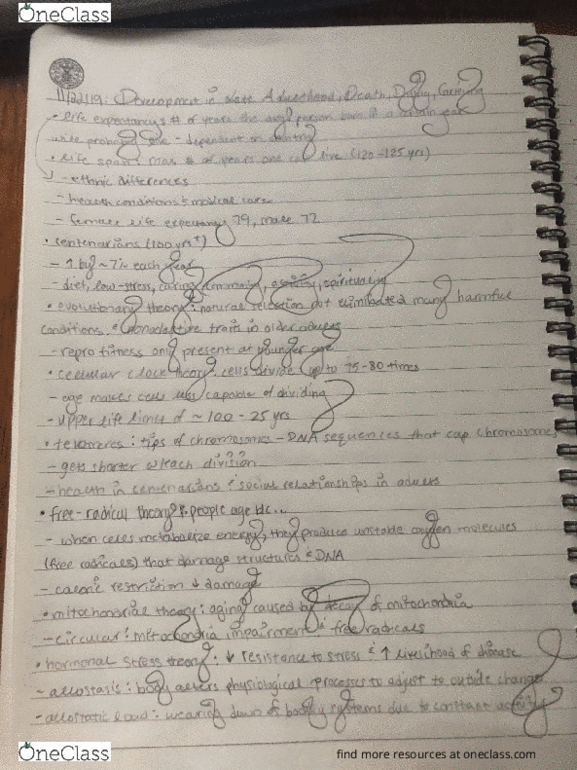 OneClass
11/22/19: Development in Late Adulthood, Death, Dying, Grieving
• life expectancy: # of years the avg person born in a certain year
will probably live - dependent on country
• life span: max # of years one can live (120-125 yrs)
- ethnic differences
- health conditions & medical care
- female life expectancy 79, male 72
• centenarians (100 yrs+)
- ↑ by ~7% each year
- diet, low-stress, caring community, activity, spirituality
• evolutionary theory: natural selection not eliminated many harmful
conditions & nonadaptive traits in older adults
- repro fitness only present at younger age
• cellular clock theory: cells divide up to 75-80 times
- age makes cells less capable of dividing
- upper life limit of ~100-25 yrs
• telomeres: tips of chromosomes - DNA sequences that cap chromosomes
- gets shorter w/each division
- health in centenarians & social relationships in adults
• free-radical theory: people age bc...
- when cells metabolize energy, they produce unstable oxygen molecules
(free radicals) that damage structures & DNA
- caloric restriction ↓ damage
• mitochondrial theory: aging caused by decay of mitochondria
- circular: mitochondria impairment & free radicals
• hormonal stress theory: ↓ resistance to stress & ↑ likelihood of disease
- allostasis: body alters physiological processes to adjust to outside change
- allostatic load: wearing down of body systems due to constant activity
OneClass
find more resources at oneclass.com